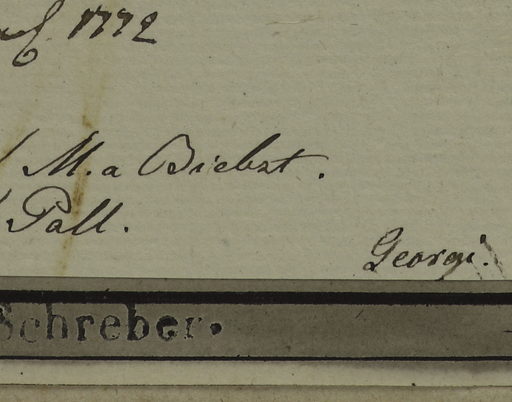 1772
M. a Biebst.
Pall.
Georgi.
Schreber.